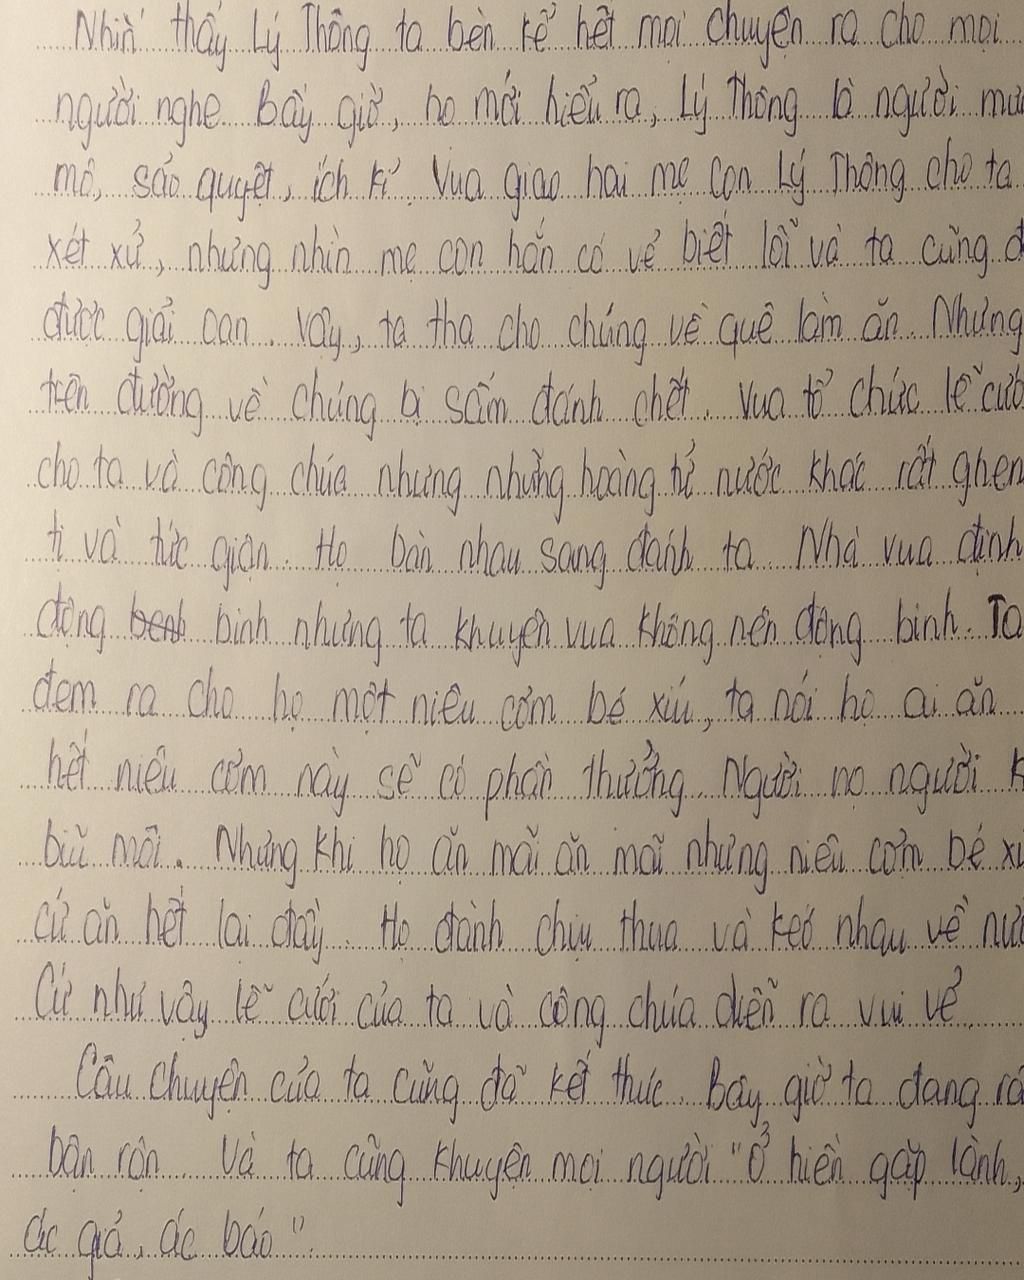 Nhìn thấy Lý Thông ta bèn kể hết mọi chuyện ra cho mọi
người nghe. Bây giờ, họ mới hiểu ra, Lý Thông là người mưu
mô, sảo quyệt, ích kỉ. Vua giao hai mẹ con Lý Thông cho ta
xét xử, nhưng nhìn mẹ con hắn có vẻ biết lỗi và ta cũng đ
được giải oan. Vậy, ta tha cho chúng về quê làm ăn. Nhưng
trên đường về chúng bị sấm đánh chết. Vua tổ chức lễ cưới
cho ta và công chúa nhưng những hoàng tử nước khác rất ghen
tị và tức giận. Họ bàn nhau sang đánh ta. Nhà vua định
động benh binh nhưng ta khuyên vua không nên động binh. Ta
đem ra cho họ một niêu cơm bé xíu, ta nói họ ai ăn
hết niêu cơm này sẽ có phần thưởng. Người nọ người k
bĩu môi. Nhưng khi họ ăn mãi ăn mãi nhưng niêu cơm bé xí
cứ ăn hết lại đầy. Họ đành chịu thua và kéo nhau về nướ
Cứ như vậy lễ cưới của ta và công chúa diễn ra vui vẻ.
Câu chuyện của ta cũng đã kết thúc. Bây giờ ta đang rấ
bận rộn. Và ta cũng khuyên mọi người "ở hiền gặp lành,
ác giả, ác báo".